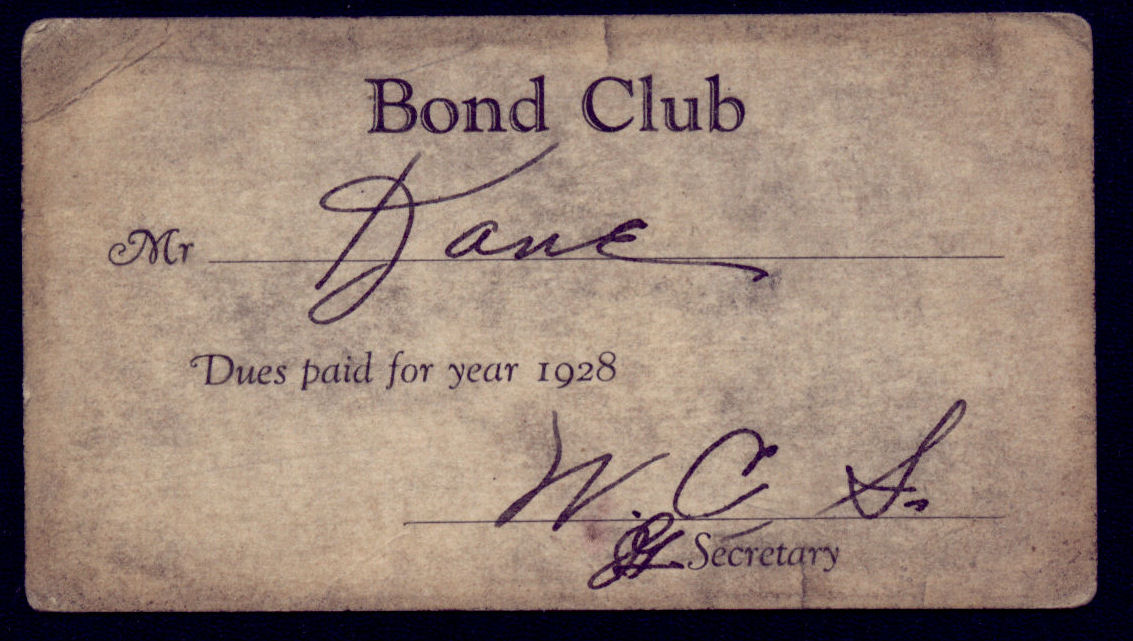 Bond Club
Mr Dane
Dues paid for year 1928
W. C S.
Secretary